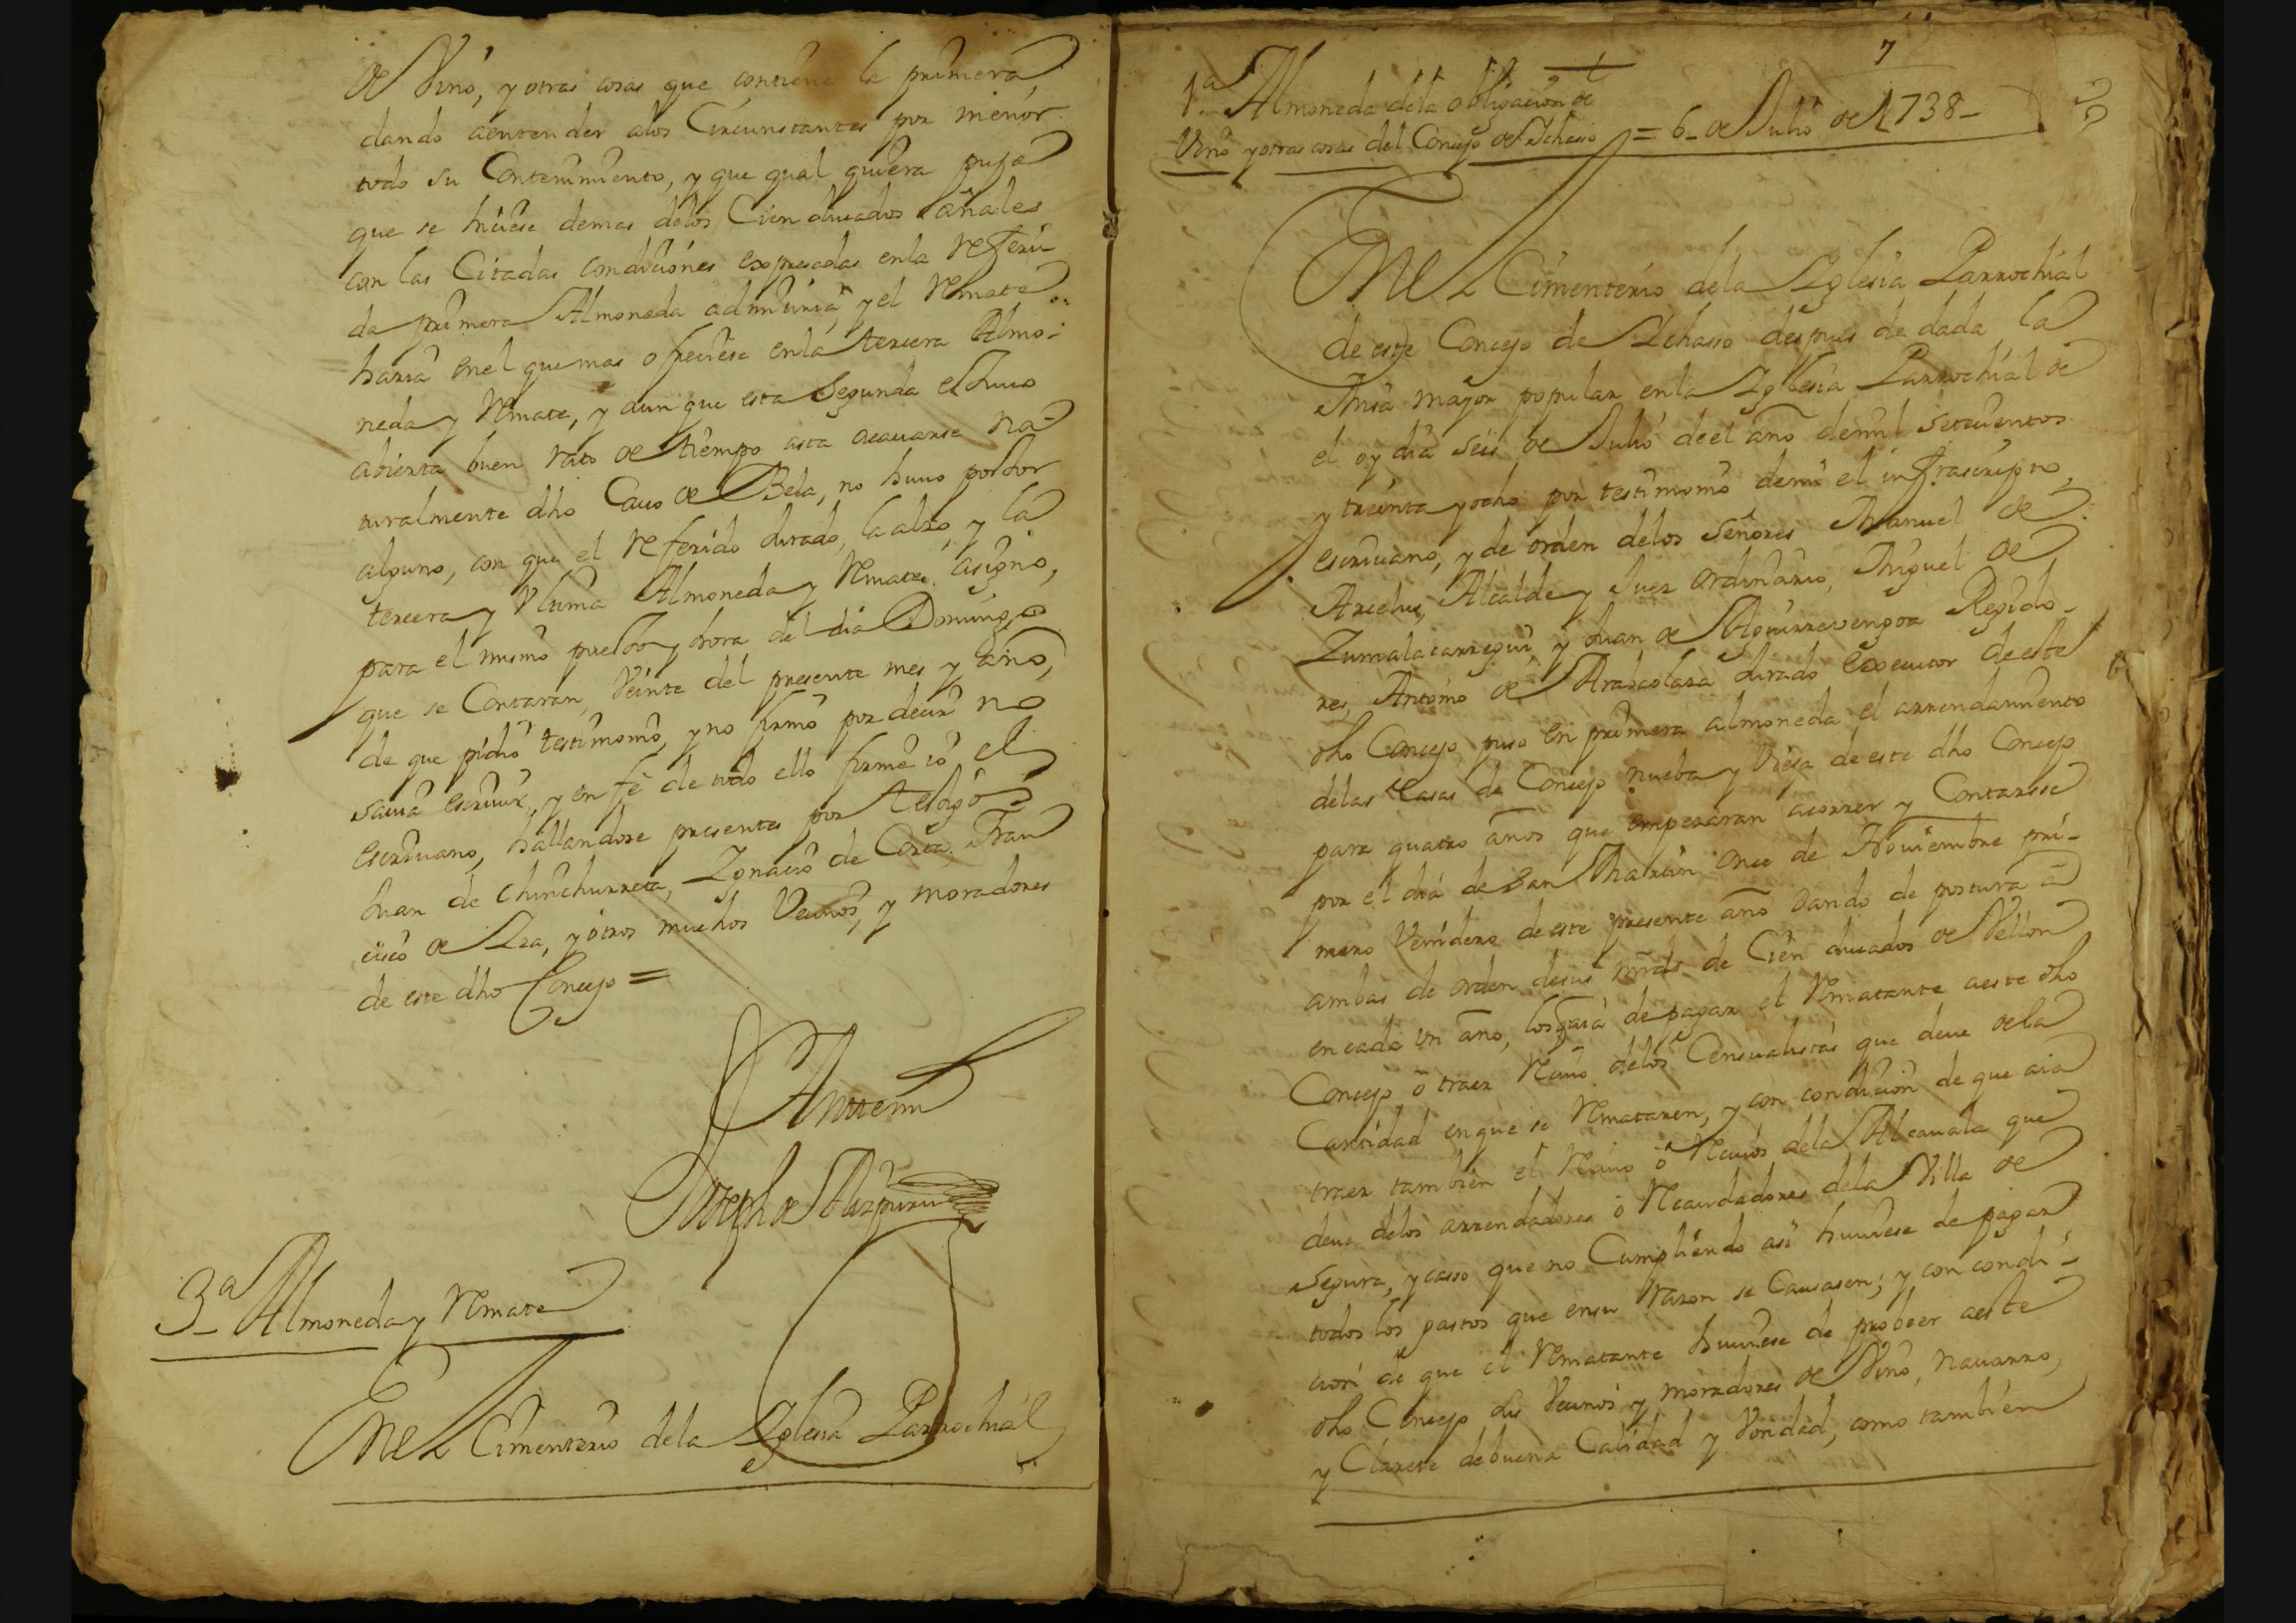 de Vino, y otras cosas que contiene la primera,
dando aentender alos Circunstantes por menor
todo su Contenimiento, y que qual quiera puja
que se hiciese demas delos Cien ducados añales
con las Citadas condiciones expresadas enla referi
da primera Almoneda admitiria, y el remate
haria enel que mas ofreciese enla tercera Almo-
neda y remate, y aun que esta segunda estuuo
abierta buen rato de tiempo asta acauarse na-
turalmente dho Cauo de Bela, no huuo postor
alguno, con que el referido Jurado, la alzo, y la
tercera y Vltima Almoneda y remate asigno,
para el mismo puesto y hora del dia Domingo
que se Contaran, Veinte del presente mes y año,
de que pidio testimonio, y no firmo por decir no
sauia escriuir, y en fè de todo ello firmè io el
escriuano, hallandose presentes por testigos
Juan de Chinchurreta, Ygnacio de Corta, Fran
cisco de Yza, y otros muchos Vecinos, y moradores
de este dho Concejo =
Antte mi
Joseph de Aizpuru
3ª Almoneda y remate
Enel Cimenterio dela Yglesia Parrochial
7
1ª Almoneda dela obligacion de
Vino y otras cosas del Concejo de Ychasso = 6 de Julio de 1738
Enel Cimenterio dela Yglesia Parrochial
de este Concejo de Ychasso despues de dada la
Misa mayor popular enla Yglesia Parrochial de
el oy dia seis de Julio de el año demil setecientos
y treinta y ocho por testimonio demi el infrascripto,
escriuano, y de orden delos Señores Manuel de
Arcelus, Alcalde y Juez ordinario, Miguel de
Zumalacarregui, y Juan de Aguirrevengoa Regido-
res, Antonio de Arascolaza Jurado executor de este
dho Concejo, puso en primera almoneda el arrendamiento
delas Casas de Concejo nueba y Vieja de este dho Concejo
para quatro años que empezaran acorrer y Contarse
por el dia de San Martin once de Nouiembre pri-
mero Venidero de este presente año dando de postura a
ambas de orden desus mrds de Cien ducados de Vellon
en cada vn año, los de pagar el rematante aeste dho
Concejo ò traer reciuo delos Censualistas que deue dela
Cantidad enque se remataren, y con condicion de que aia
traer tambien el reciuo ò reciuos dela Alcauala que
deue delos arrendadores ò recaudadores dela Villa de
Segura, y casso que no Cumpliendo asi huuiese de pagar
todos los gastos que ensu razon se Causasen; y con condi-
cion de que el rematante huuiese de probeer aeste
dho Concejo sus Vecinos y moradores de Vino, nauarro,
y Clarete debuena Calidad y Vondad, como tambien